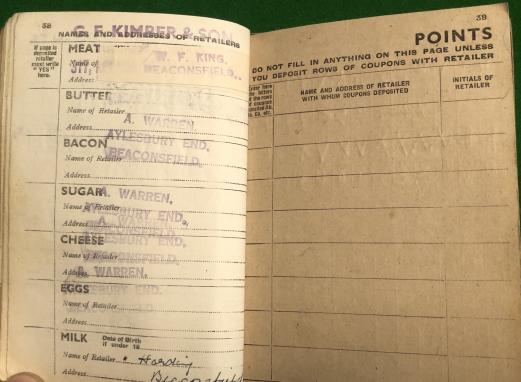 38
G. F. KIMBER & SON
NAMES AND ADDRESSES OF RETAILERS
If page is
deposited
retailer
must write
"YES"
here.
MEAT
W. F. KING,
Name of
BEACONSFIELD.
BUTTER
Name of Retailer
A. WARREN
Address
AYLESBURY END,
BACON
BEACONSFIELD.
Name of Retailer
Address
SUGAR
A. WARREN,
Name of Retailer
AYLESBURY END,
Address
AYLESBURY END,
CHEESE
BEACONSFIELD.
Name of Retailer
Address
A. WARREN.
EGGS
Name of Retailer
Address
MILK Date of Birth
if under 18
Name of Retailer Harding
Address
39
POINTS
DO NOT FILL IN ANYTHING ON THIS PAGE UNLESS
YOU DEPOSIT ROWS OF COUPONS WITH RETAILER
NAME AND ADDRESS OF RETAILER
WITH WHOM COUPONS DEPOSITED
INITIALS OF
RETAILER